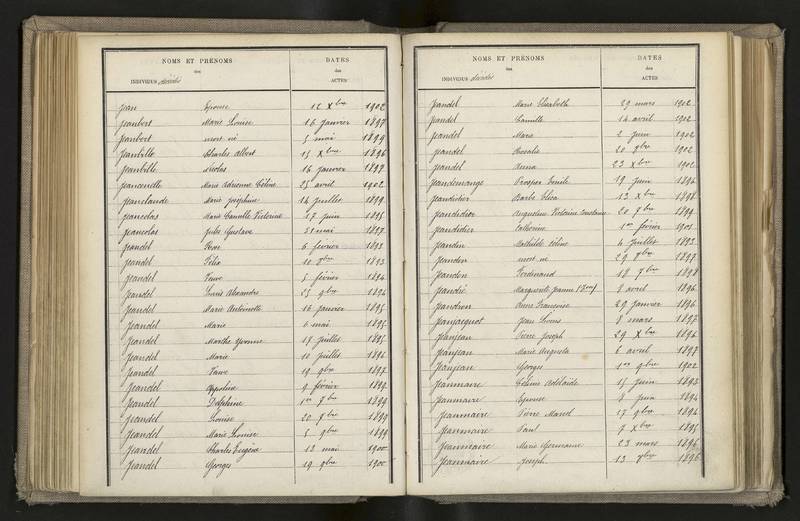 NOMS ET PRÉNOMS
des
INDIVIDUS décédés
DATES
des
ACTES
Jean Epouse 12 Xbre 1902
Jeanbert Marie Louise 16 janvier 1897
Jeanbert mort né 5 mai 1899
Jeanbille Charles Albert 15 Xbre 1896
Jeanbille Nicolas 16 janvier 1897
Marie Adrienne Céline 25 avril 1902
Jeanclaude Marie Joséphine 14 juillet 1899
Jeancolas Marie Camille Victorine 17 juin 1895
Jeancolas Jules Gustave 31 mai 1897
Jeandel 6 février 1893
Jeandel Félix 10 9bre 1893
Jeandel Veuve 5 février 1894
Jeandel Louis Alexandre 25 9bre 1894
Jeandel Marie Antoinette 16 janvier 1895
Jeandel Marie 6 mai 1895
Jeandel Marthe Yvonne 17 juillet 1895
Jeandel Marie 10 juillet 1896
Jeandel Veuve 19 9bre 1897
Jeandel Appoline 9 février 1899
Jeandel Delphine 1er 7bre 1899
Jeandel Louise 20 7bre 1899
Jeandel Marie Louise 5 9bre 1899
Jeandel Charles Eugène 13 mai 1900
Jeandel Georges 19 9bre 1900
NOMS ET PRÉNOMS
des
INDIVIDUS décédés
DATES
des
ACTES
Jeandel Marie Elisabeth 29 mars 1902
Jeandel Camille 14 avril 1902
Jeandel Marie 2 juin 1902
Jeandel Rosalie 20 9bre 1902
Jeandel Anna 23 Xbre 1902
Jeandemange Prosper Emile 19 juin 1896
Jeandidier Barbe Elisa 13 Xbre 1898
Jeandidier Augustine Victorine Constance 20 7bre 1899
Jeandidier Catherine 1er février 1901
Jeandin Mathilde Hélène 4 juillet 1893
Jeandon mort né 29 9bre 1897
Jeandon Ferdinand 18 7bre 1898
Jeandié Marguerite Jeanne 8 avril 1896
Jeandron Anne Françoise 29 janvier 1896
Jeanjacquot Jean Louis 8 mars 1897
Jeanjean Pierre Joseph 29 Xbre 1894
Jeanjean Marie Augusta 6 avril 1897
Jeanjean Georges 1er 9bre 1902
Jeanmaire Céline Adélaïde 15 juin 1893
Jeanmaire Epouse 8 juin 1894
Jeanmaire Pierre Marcel 17 9bre 1894
Jeanmaire Paul 7 Xbre 1895
Jeanmaire Marie Germaine 23 mars 1896
Jeanmaire Joseph 13 9bre 1896